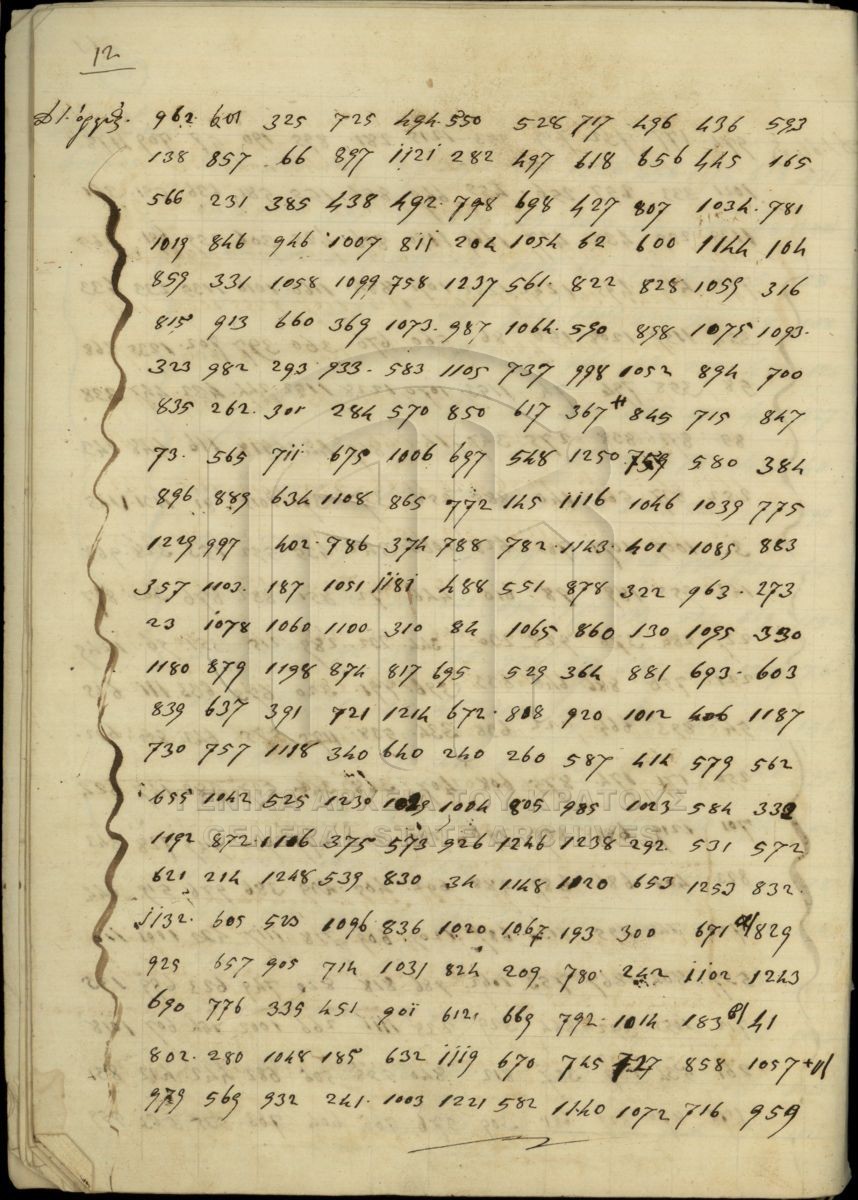 12
962 601 325 725 494 550 528 717 496 436 593
138 857 66 897 1121 282 497 618 656 445 165
566 231 385 438 492 798 698 427 807 1034 781
1019 846 946 1007 811 204 1054 62 600 1144 104
859 331 1058 1099 758 1237 561 822 828 1059 316
815 913 660 369 1073 987 1064 590 898 1075 1093
323 982 293 933 583 1105 737 998 1052 894 700
835 262 301 284 570 850 617 367 + 845 715 847
73 565 711 675 1006 697 548 1250 759 580 384
896 889 634 1108 865 772 145 1116 1046 1039 775
1229 997 402 786 374 788 782 1143 401 1085 883
357 1103 187 1051 1181 488 551 878 322 963 273
23 1078 1060 1100 310 84 1065 860 130 1095 330
1180 879 1198 874 817 695 529 364 881 693 603
839 637 391 721 1214 672 808 920 1012 406 1187
730 757 1118 340 640 240 260 587 414 579 562
655 1042 525 1230 1004 805 985 1023 584 332
1192 872 1106 375 573 926 1246 1238 292 531 572
621 214 1248 539 830 34 1148 1020 653 1253 832
1132 605 523 1096 836 1020 1067 193 300 671 α/ 829
925 657 905 714 1031 824 209 780 242 1102 1243
690 776 335 451 901 612 669 792 1014 183 β/ 41
802 280 1048 185 632 1119 670 745 727 858 1057 +
979 569 932 241 1003 1221 582 1140 1072 716 959